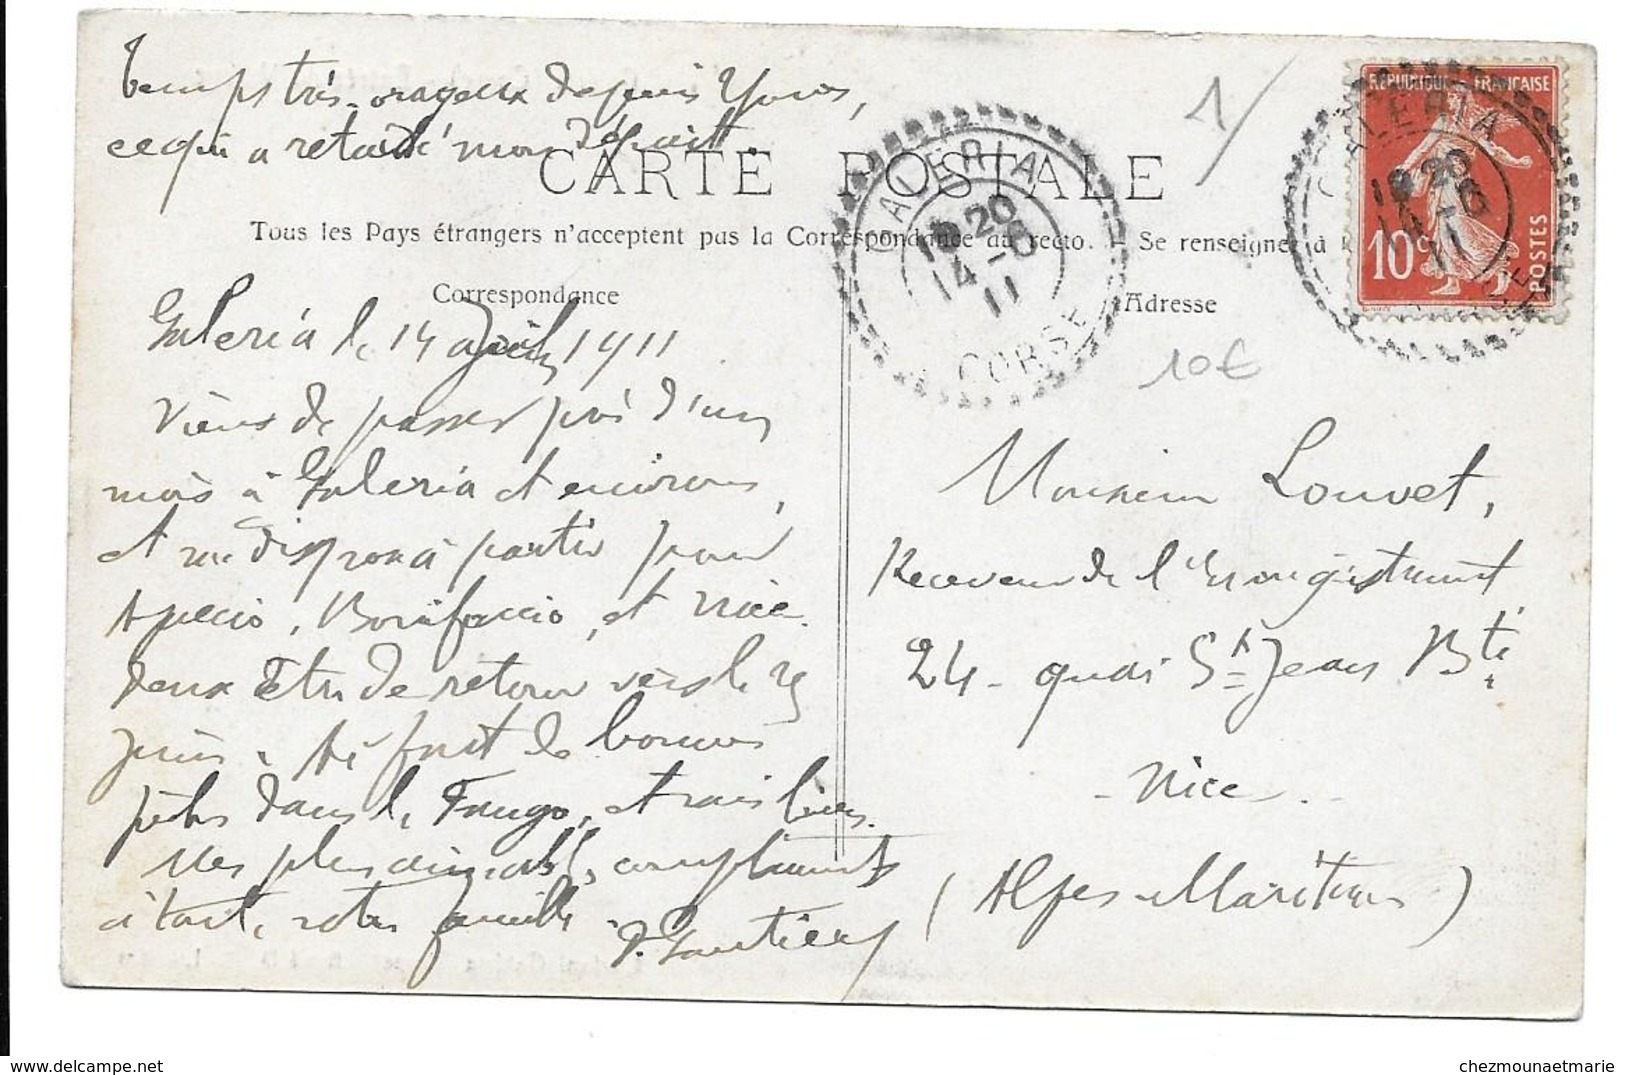 Temps très orageux depuis 4 jours,
ce qui a retardé mon départ.
CARTE POSTALE
Tous les Pays étrangers n'acceptent pas la Correspondance au recto. - Se renseigner à
Correspondance
Adresse
Galéria le 14 Juin 1911
Viens de passer près d'un
mois à Galéria et environs,
et me dispose à partir pour
Ajaccio, Bonifaccio, et Nice.
Veux être de retour vers le 25
Juin. Ai fait de bonnes
pêches dans le Fango, et vais bien.
Mes plus aimables compliments
à toute votre famille.
P. Gautier
Monsieur Louvet,
Receveur de l'Enregistrement,
24 - quai St Jean Bte
- Nice -
(Alpes-Maritimes)
GALERIA
19 20
14 - 6
11
CORSE
GALERIA
19 20
14 - 6
11
CORSE
REPUBLIQUE FRANÇAISE
10c
POSTES
1/
10€
chezmounaetmarie